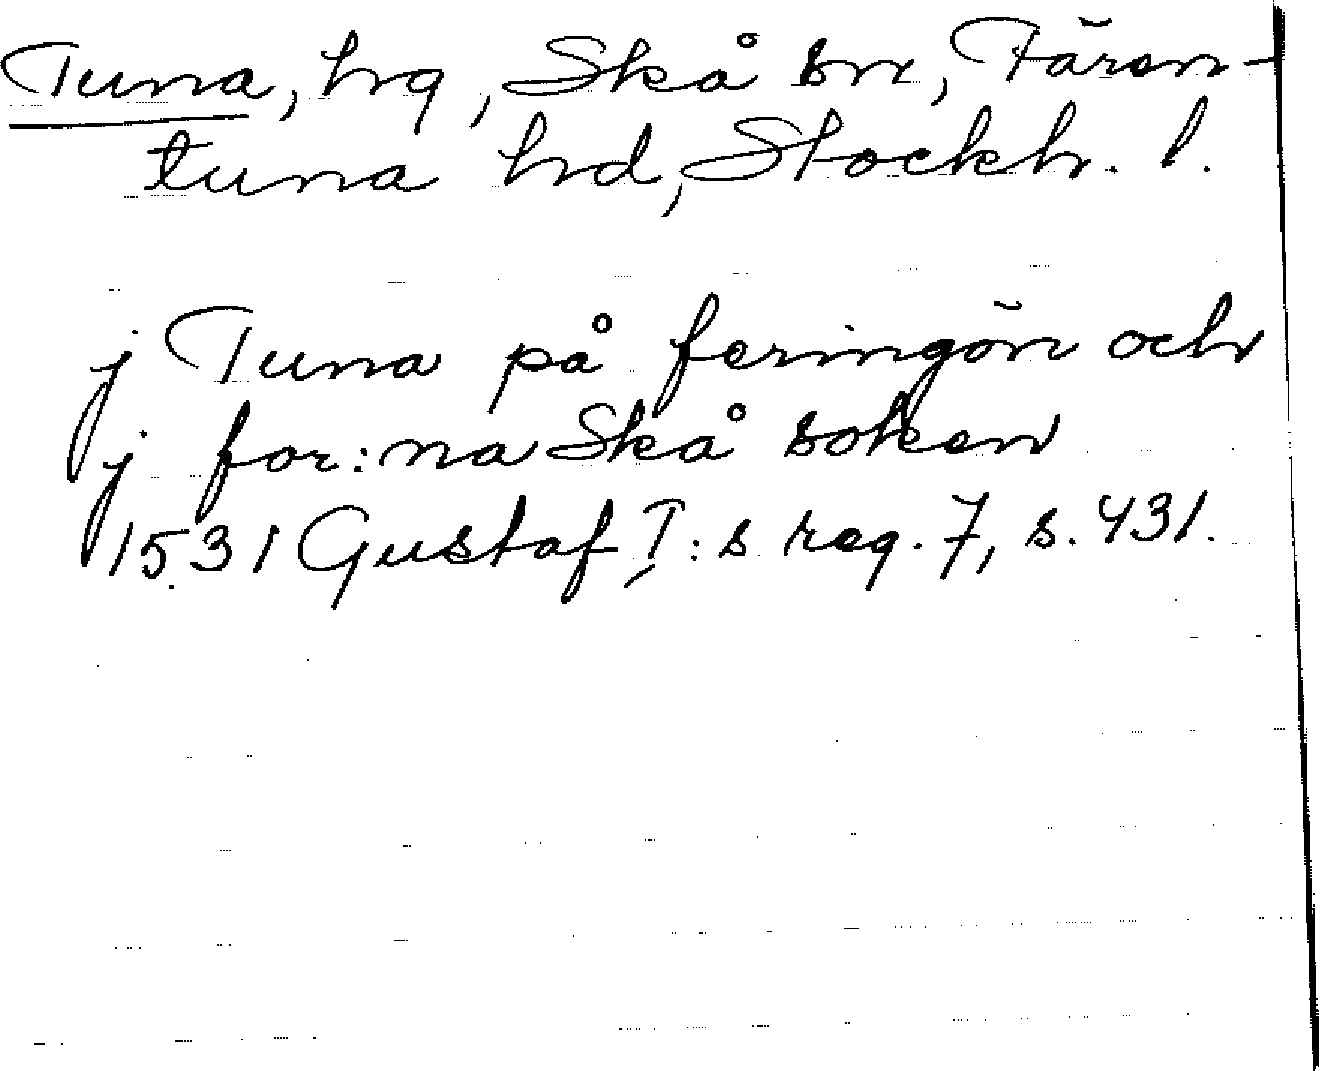 Tuna, hrg, Skå sn, Fären-
tuna hrd, Stockh. l.
j Tuna på feringön och
j for:na Skå soken
1531 Gustaf I:s reg. 7, s. 431.